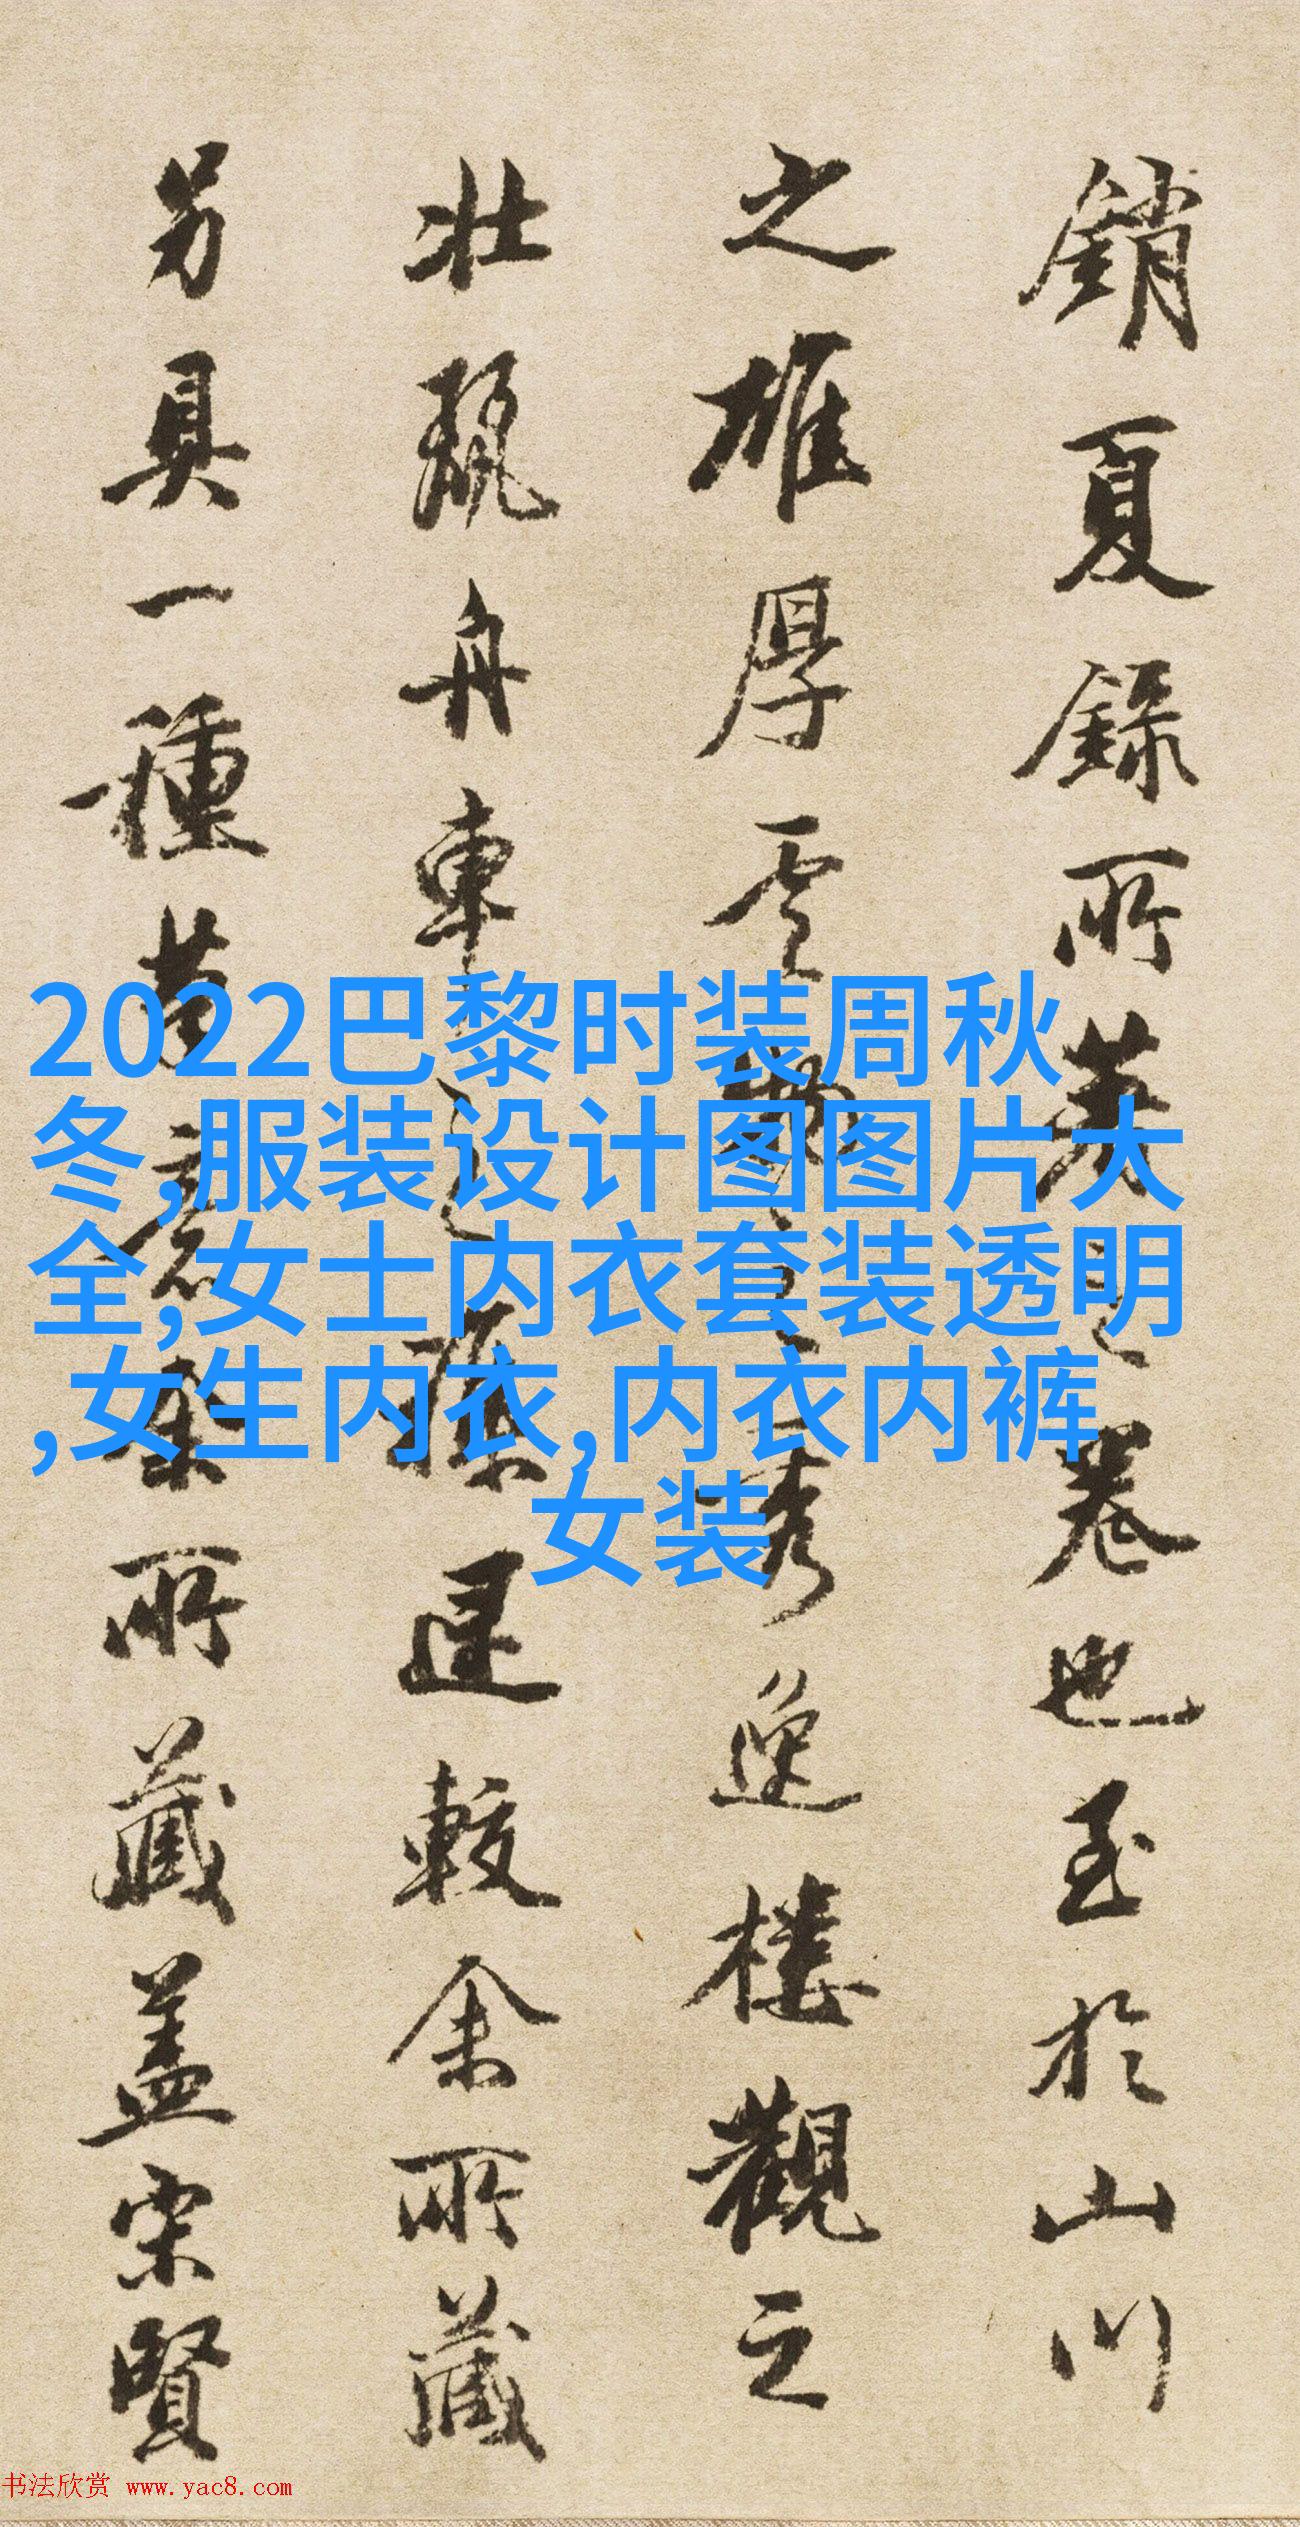 銷夏錄所
卷也至於山川
之雄厚雲
秀逸樓觀之
壯麗舟車之
遲較余所藏
另具一種
所藏蓋宋賢
2022巴黎时装周秋
冬,服装设计图图片大
全,女士内衣套装透明
,女生内衣,内衣内裤
女装
书法欣赏 www.yac8.com